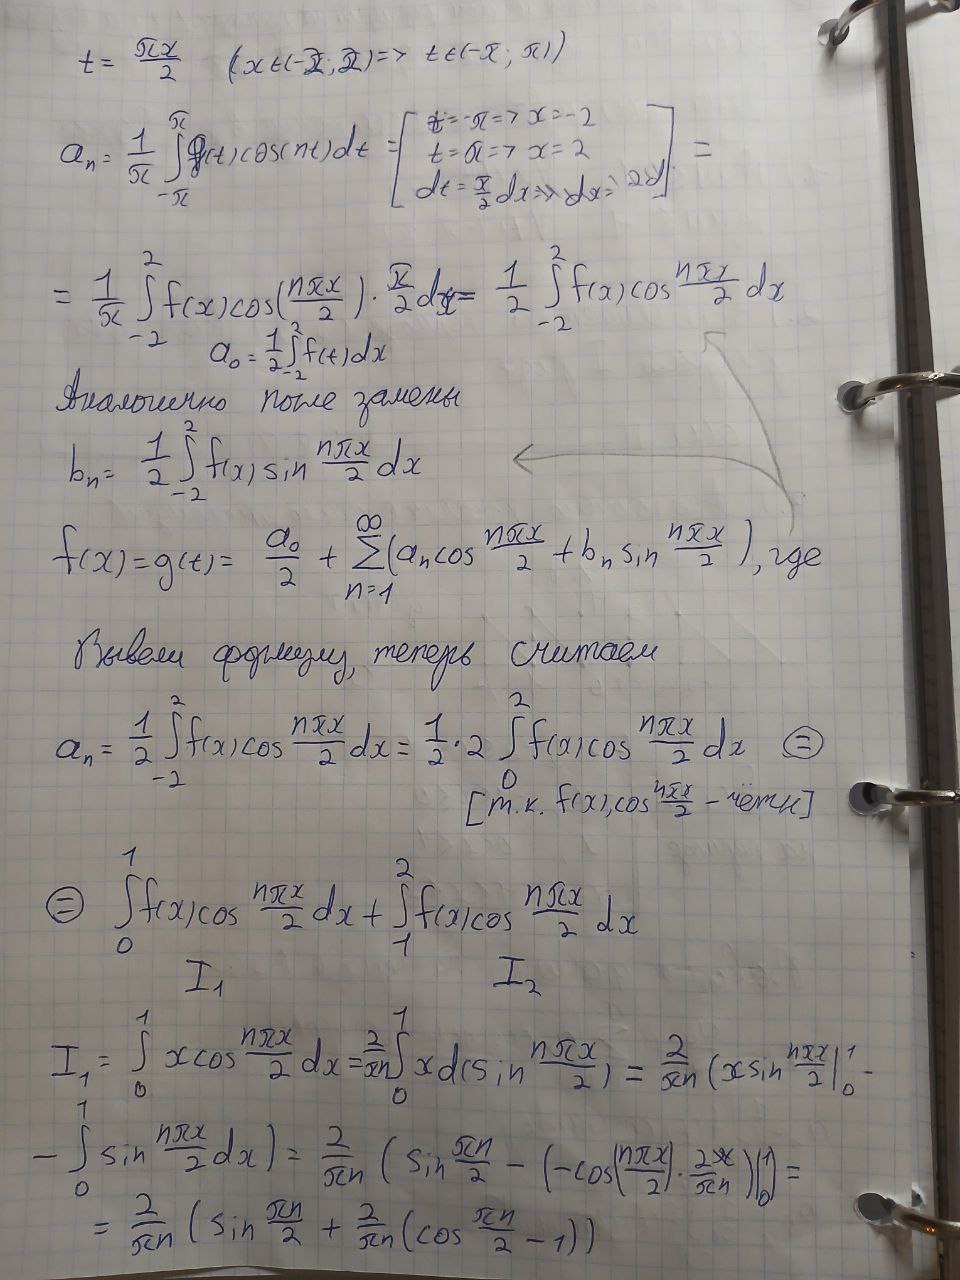 t = πx/2 (x∈(-2; 2) => t∈(-π; π))
aₙ = 1/π ∫_{-π}^{π} g(t)cos(nt)dt = [t=-π => x=-2
t=π => x=2
dt = π/2 dx => dx =] =
= 1/π ∫_{-2}^{2} f(x)cos(nπx/2)·π/2 dx = 1/2 ∫_{-2}^{2} f(x)cos nπx/2 dx
a₀ = 1/2 ∫_{-2}^{2} f(t)dx
Аналогично после замены
bₙ = 1/2 ∫_{-2}^{2} f(x)sin nπx/2 dx
f(x) = g(t) = a₀/2 + ∑_{n=1}^{∞}(aₙcos nπx/2 + bₙ sin nπx/2), где
Вывели формулу, теперь считаем
aₙ = 1/2 ∫_{-2}^{2} f(x)cos nπx/2 dx = 1/2·2 ∫_{0}^{2} f(x)cos nπx/2 dx ⊜
[т.к. f(x), cos nπx/2 - чётн]
⊜ ∫_{0}^{1} f(x)cos nπx/2 dx + ∫_{1}^{2} f(x)cos nπx/2 dx
I₁ I₂
I₁ = ∫_{0}^{1} x cos nπx/2 dx = 2/πn ∫_{0}^{1} x d(sin nπx/2) = 2/πn (x sin nπx/2 |_{0}^{1} -
- ∫_{0}^{1} sin nπx/2 dx) = 2/πn (sin πn/2 - (-cos(nπx/2)·2/πn)|_{0}^{1}) =
= 2/πn (sin πn/2 + 2/πn (cos πn/2 - 1))